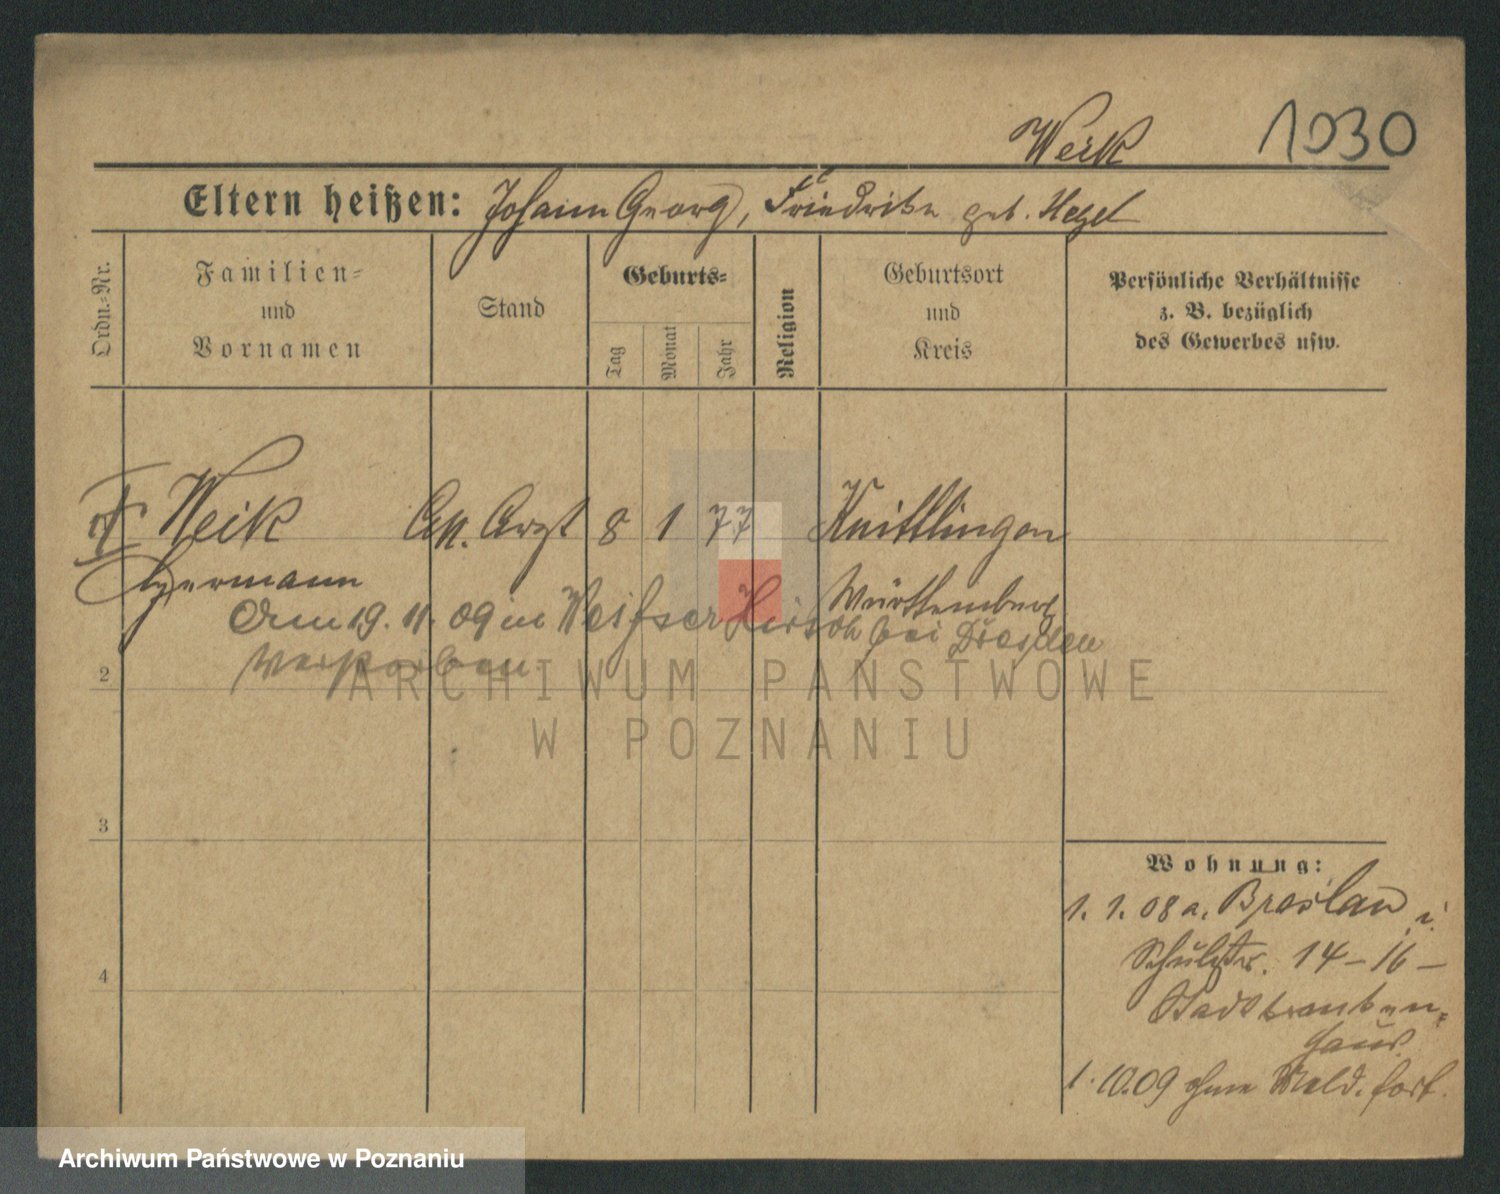 Weik 1030
Eltern heißen: Johann Georg, Friedrike geb. Hegel
Ordn.-Nr.
Familien-
und
Vornamen
Stand
Geburts-
Tag
Monat
Jahr
Religion
Geburtsort
und
Kreis
Persönliche Verhältnisse
z. B. bezüglich
des Gewerbes usw.
Weik Arzt 8 1 77 Knittlingen
Hermann Württemberg
Am 19. 11. 09 in Weisser Hirsch bei Dresden
verstorben
2
3
4
Wohnung:
1. 1. 08 a. Breslau
Schulstr. 14–16–
Stadtkranken-
haus.
1. 10. 09 ohne Meld. fort.
ARCHIWUM PAŃSTWOWE
W POZNANIU
Archiwum Państwowe w Poznaniu